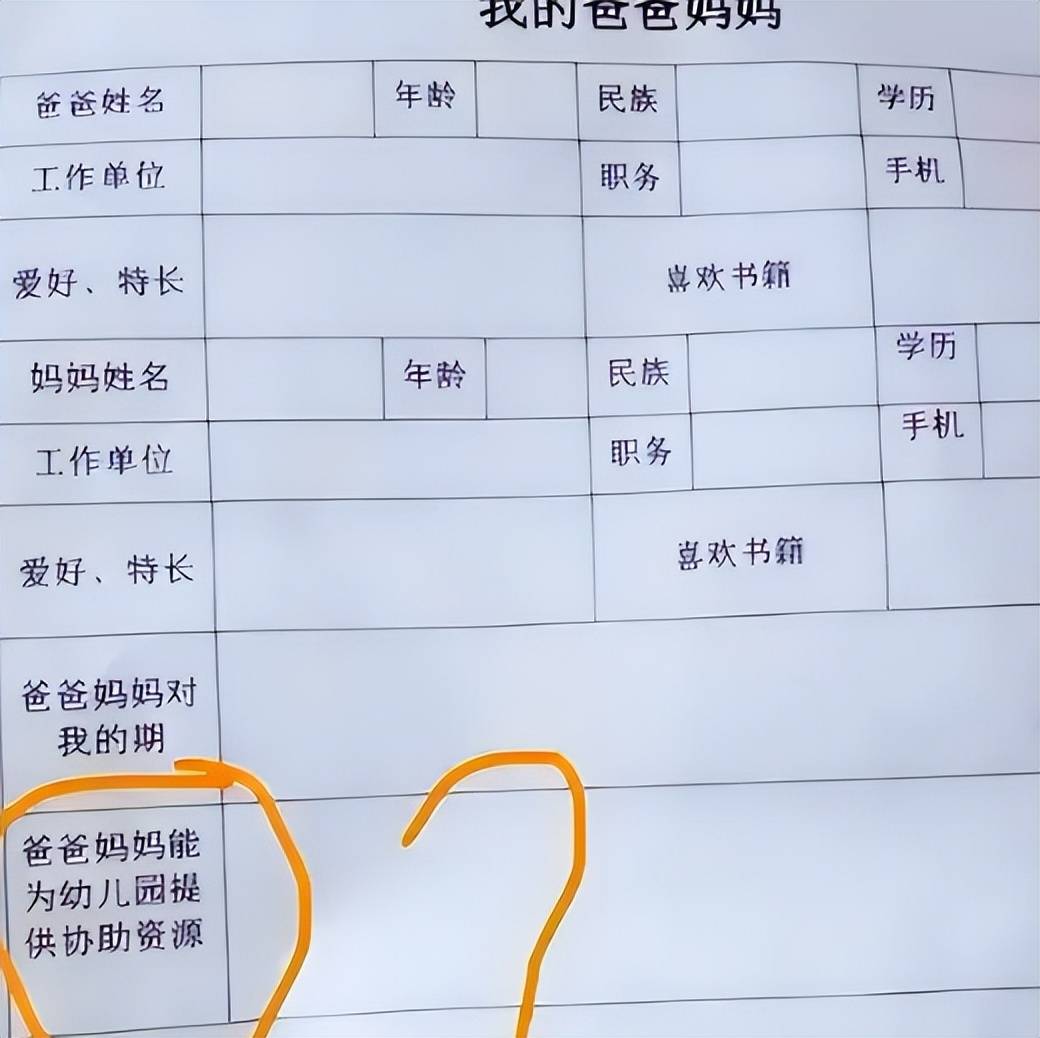 我的爸爸妈妈
爸爸姓名 年龄 民族 学历
工作单位 职务 手机
爱好、特长 喜欢书籍
妈妈姓名 年龄 民族 学历
工作单位 职务 手机
爱好、特长 喜欢书籍
爸爸妈妈对
我的期
爸爸妈妈能
为幼儿园提
供协助资源
?